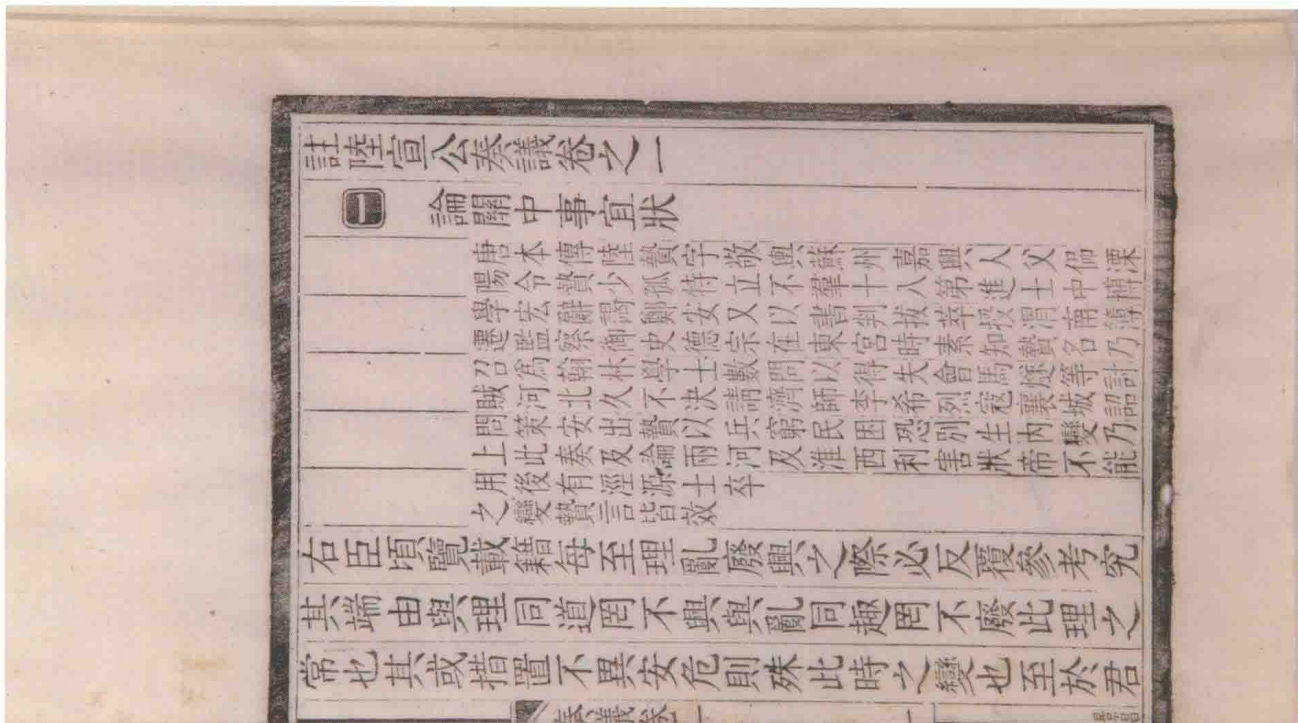 註陸宣公奏議卷之一
一 論關中事宜狀
唐本傳陸贄字敬輿蘇州嘉興人父侃溧
陽令贄少孤特立不羣十八第進士中博
學宏辭調鄭安又以書判拔萃授渭南簿
遷監察御史德宗在東宮時素知贄名乃
召為翰林學士數問以得失會馬燧等討
賊河北久不決請濟師李希烈寇襄城詔
問策安出贄以兵窮民困恐別生內變乃
上此奏及論兩河及淮西利害狀帝不能
用後有涇源士卒
之變贄言皆效
右臣頃覽載籍每至理亂廢興之際必反覆參考究
其端由與理同道罔不興與亂同趣罔不廢此理之
常也其或措置不異安危則殊此時之變也至於君
奏議卷一
一